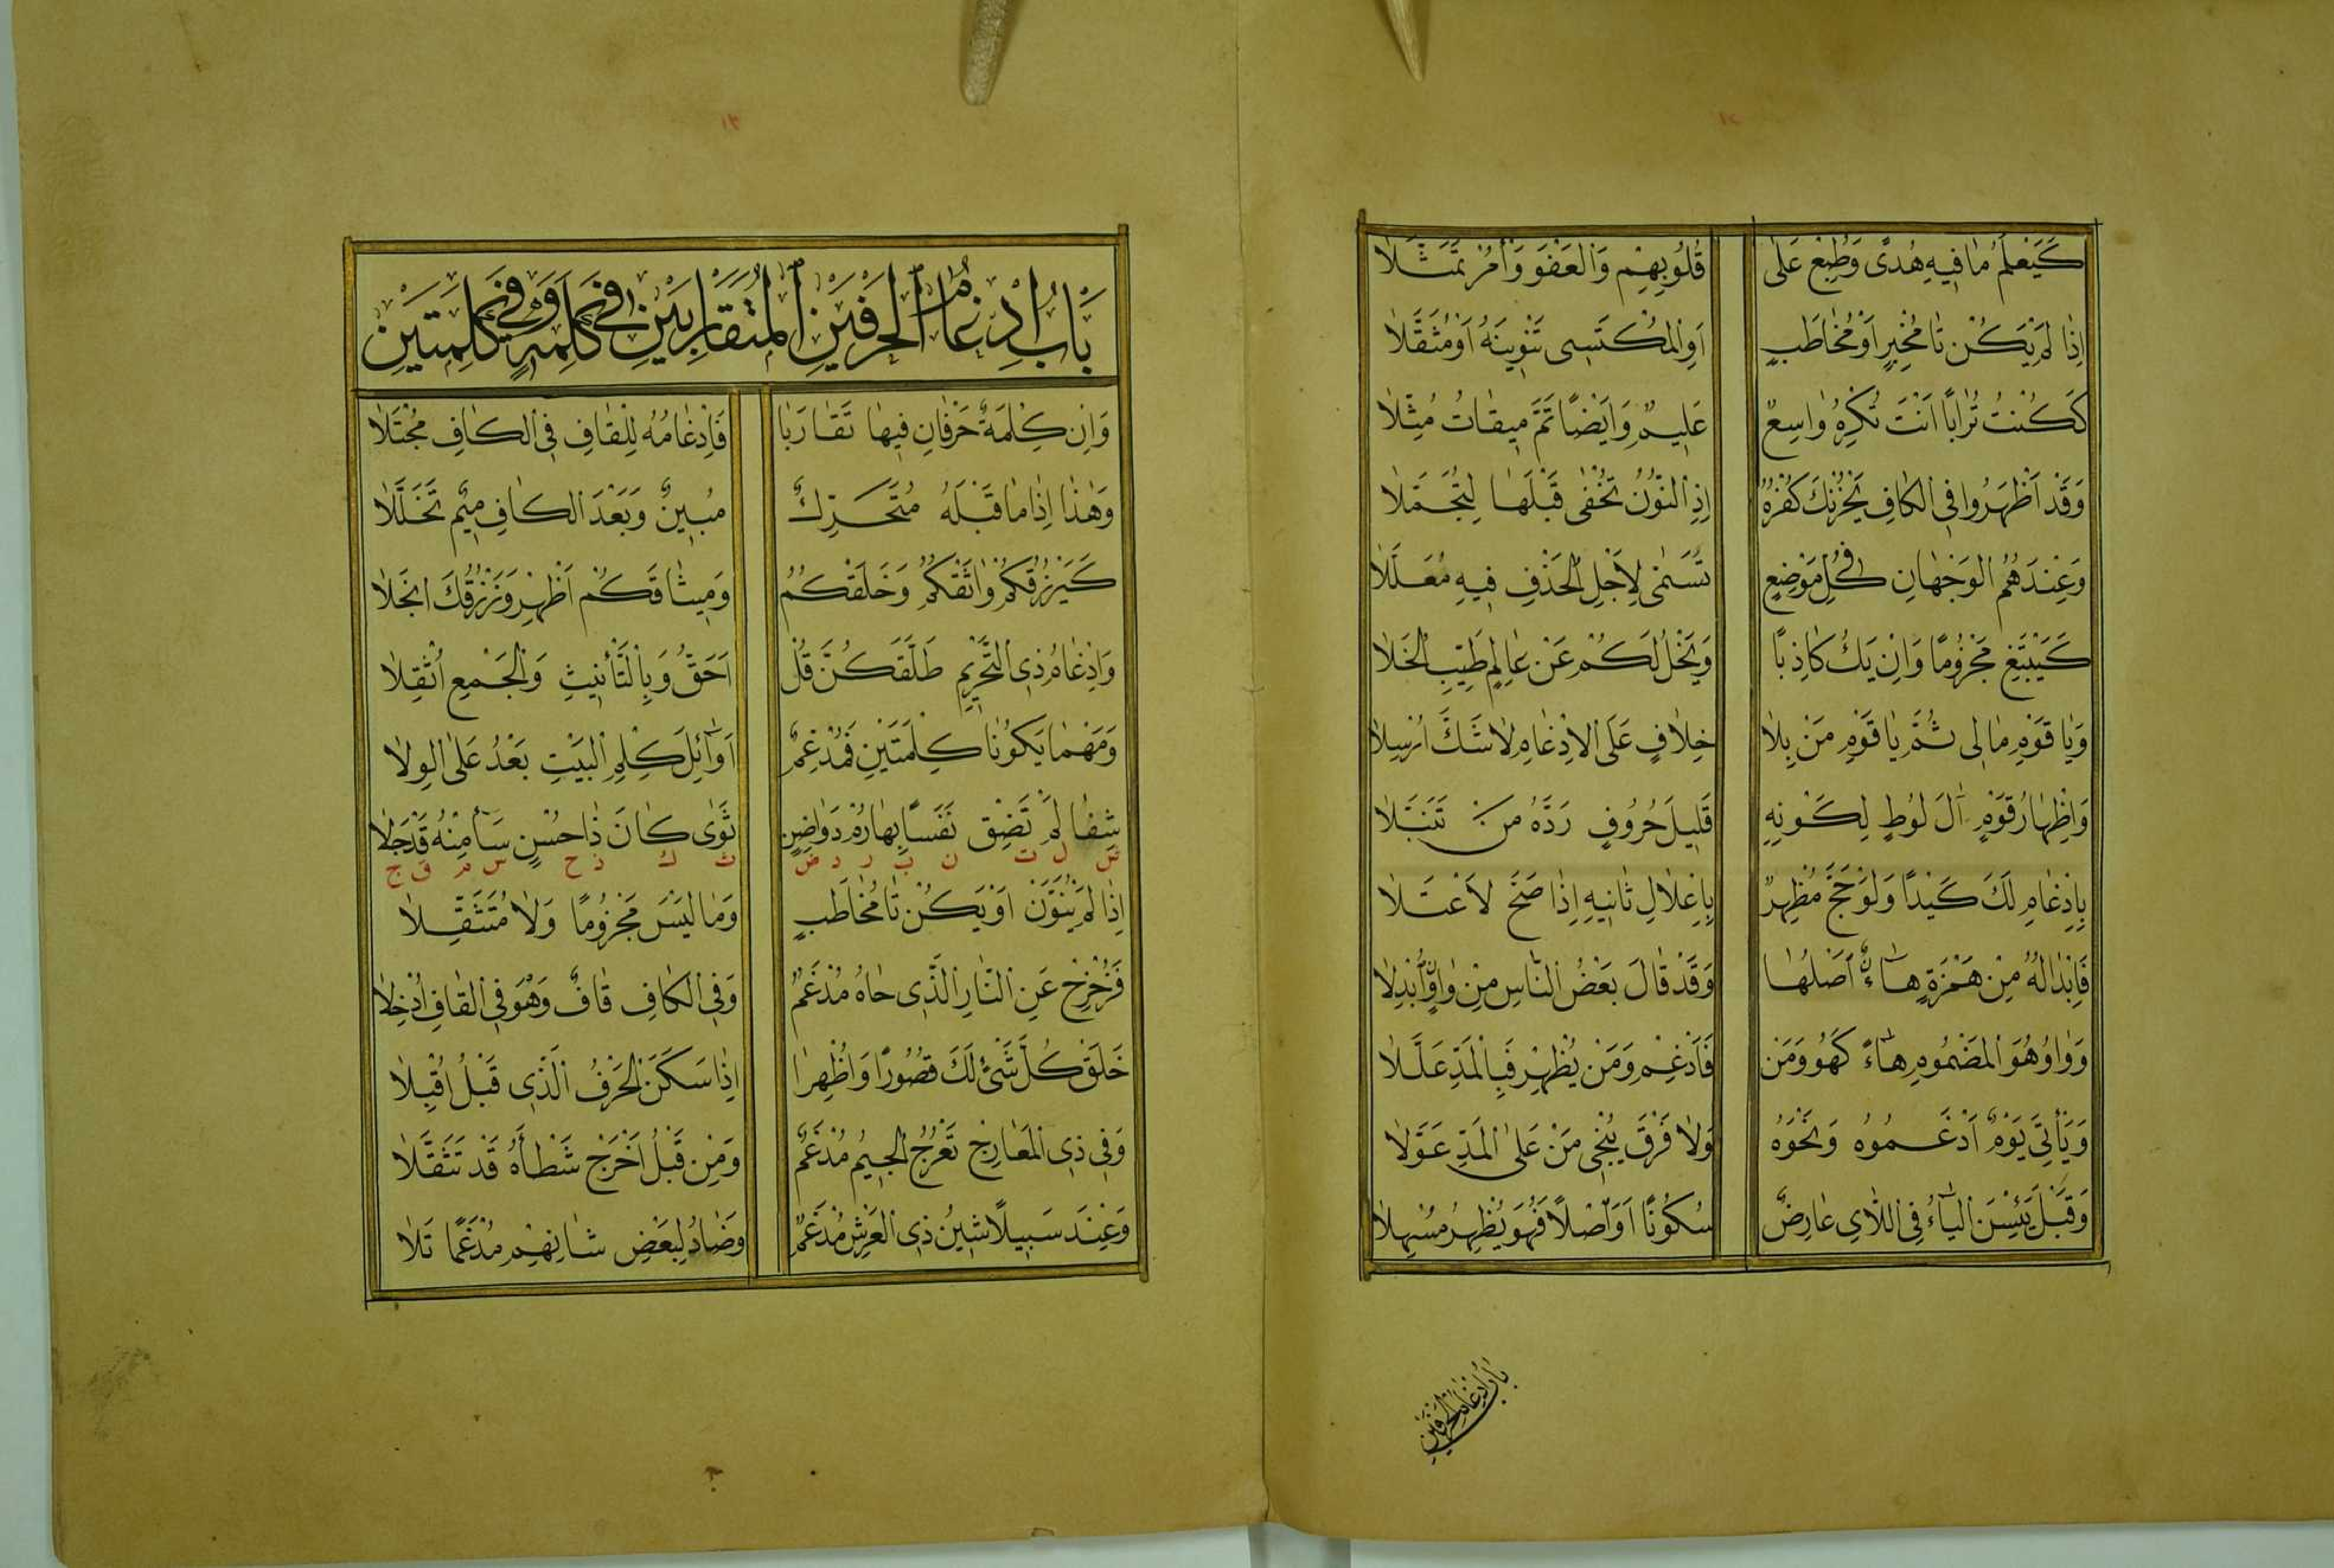 ١٢
كَيَعْلَمُ مَا فِيهِ هُدًى وَطُبِعْ عَلَى قُلُوبِهِمْ وَالْعَفْوَ وَأْمُرْ تَمَثَّلَا
اِذَا لَمْ يَكُنْ تَا مُخْبِرٍ اَوْ مُخَاطَبٍ اَوِ الْمُكْتَسِى تَنْوِينَهُ اَوْ مُثَقَّلَا
كَكُنْتُ تُرَابًا اَنْتَ تُكْرِهُ وَاسِعٌ عَلِيمٌ وَاَيْضًا تَمَّ مِيقَاتُ مُثِّلَا
وَقَدْ اَظْهَرُوا فِى الْكَافِ يَحْزُنْكَ كُفْرُهُ اِذِ النُّونُ تُخْفَى قَبْلَهَا لِتُجَمَّلَا
وَعِنْدَهُمُ الْوَجْهَانِ فِى كُلِّ مَوْضِعٍ تَسَمَّى لِاَجْلِ الْحَذْفِ فِيهِ مُعَلَّلَا
كَيَبْتَغِ مَجْزُومًا وَاِنْ يَكُ كَاذِبًا وَيَخْلُ لَكُمْ عَنْ عَالِمٍ طَيِّبِ الْخَلَا
وَيَا قَوْمِ مَالِى ثُمَّ يَا قَوْمِ مَنْ بِلَا خِلَافٍ عَلَى الْاِدْغَامِ لَا شَكَّ اُرْسِلَا
وَاِظْهَارُ قَوْمٍ آلَ لُوطٍ لِكَوْنِهِ قَلِيلَ حُرُوفٍ رَدَّهُ مَنْ تَنَبَّلَا
بِاِدْغَامِ لَكَ كَيْدًا وَلَوْ حَجَّ مُظْهِرٌ بِاِعْلَالِ ثَانِيهِ اِذَا صَحَّ لَاعْتَلَا
فَاِبْدَالُهُ مِنْ هَمْزَةٍ هَاءٌ اَصْلُهَا وَقَدْ قَالَ بَعْضُ النَّاسِ مِنْ وَاوٍ اُبْدِلَا
وَوَاوُ هُوَ الْمَضْمُومِ هَاءً كَهُو وَمَنْ فَاَدْغِمْ وَمَنْ يُظْهِرْ فَبِالْمَدِّ عَلَّلَا
وَيَأْتِىَ يَوْمٌ اَدْغَمُوهُ وَنَحْوَهُ وَلَا فَرْقَ يُنْجِى مَنْ عَلَى الْمَدِّ عَوَّلَا
وَقَبْلَ يَئِسْنَ الْيَاءُ فِى اللَّاىِ عَارِضٌ سُكُونًا اَوَ اَصْلًا فَهُوَ يُظْهِرُ مُسْهِلَا
بَابُ اِدْغَامِ الْحَرْفَيْنِ
١٣
بَابُ اِدْغَامِ الْحَرْفَيْنِ الْمُتَقَارِبَيْنِ فِى كَلِمَةٍ وَفِى كَلِمَتَيْنِ
وَاِنْ كِلْمَةٌ حَرْفَانِ فِيهَا تَقَارَبَا فَاِدْغَامُهُ لِلْقَافِ فِى الْكَافِ مُجْتَلَا
وَهٰذَا اِذَا مَا قَبْلَهُ مُتَحَرِّكٌ مُبِينٌ وَبَعْدَ الْكَافِ مِيمٌ تَخَلَّلَا
كَيَرْزُقْكُمُ وَاثَقْكُمُ وَخَلَقْكُمُ وَمِيثَاقَكُمْ اَظْهِرْ وَنَرْزُقُكَ انْجَلَا
وَاِدْغَامُ ذِى التَّحْرِيمِ طَلَّقَكُنَّ قُلْ اَحَقُّ وَبِالتَّأْنِيثِ وَالْجَمْعِ اُثْقِلَا
وَمَهْمَا يَكُونَا كِلْمَتَيْنِ فَمُدْغِمٌ اَوَآئِلَ كِلْمِ الْبَيْتِ بَعْدُ عَلَى الْوِلَا
شِفَا لَمْ تَضِقْ نَفْسًا بِهَا رُمْ دَوَاضِنٍ ثَوَى كَانَ ذَا حُسْنٍ سَأَ مِنْهُ قَدْ جَلَا
ش ل ت ن ب ر د ض ث ك ذ ح س م ق ج
اِذَا لَمْ يُنَوَّنْ اَوْ يَكُنْ تَا مُخَاطَبٍ وَمَا لَيْسَ مَجْزُومًا وَلَا مُتَثَقِّلَا
فَزُحْزِحْ عَنِ النَّارِ الَّذِى حَاهُ مُدْغَمٌ وَفِى الْكَافِ قَافٌ وَهْوَ فِى الْقَافِ اُدْخِلَا
خَلَقْ كُلَّ شَىْءٍ لَكَ قُصُورًا وَاُظْهِرَا اِذَا سَكَنَ الْحَرْفُ الَّذِى قَبْلُ اُقْبِلَا
وَفِى ذِى الْمَعَارِجْ تَعْرُجُ الْجِيمُ مُدْغَمٌ وَمِنْ قَبْلُ اَخْرَجْ شَطْأَهُ قَدْ تَثَقَّلَا
وَعِنْدَ سَبِيلًا شِينُ ذِى الْعَرْشِ مُدْغَمٌ وَضَادُ لِبَعْضِ شَانِهِمْ مُدْغَمًا تَلَا